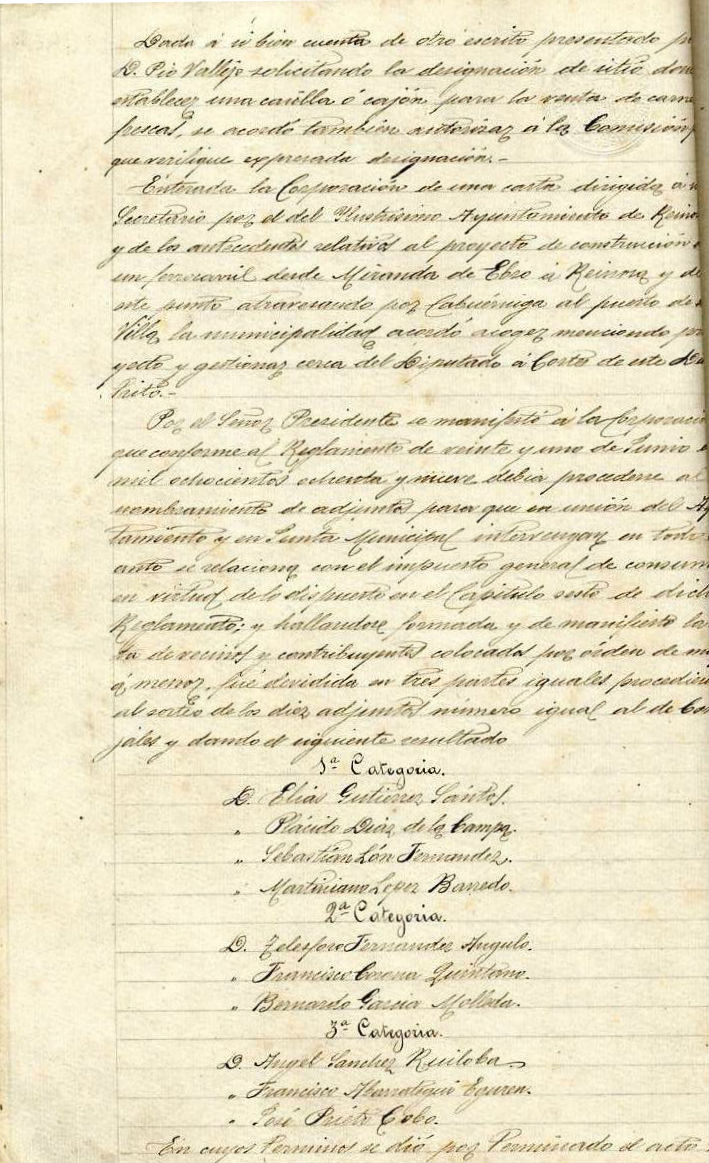 Dada á si bien cuenta de otro escrito presentado p
D. Pio Vallejo solicitando la designación de sitio don
establecer una casilla ó cajón para la venta de carne
frescas, se acordó tambien autorizar á la Comisión
que verifique expresada designación.-
Enterada la Corporación de una carta dirigida á
Secretario por el del Ylustrísimo Ayuntamiento de Reino
y de los antecedentes relativos al proyecto de construcción
un ferrocarril desde Miranda de Ebro á Reinosa y de
ste punto atravesando por Cabuérniga al puerto de
Villa, la municipalidad acordó acoger mencionado pro
yecto y gestionar cerca del Diputado á Cortes de este Dis
trito.-
Por el Señor Presidente se manifestó á la Corporació
que conforme al Reglamento de veinte y uno de Junio
mil ochocientos ochenta y nueve debia procederse al
nombramiento de adjuntos para que en unión del Ay
tamiento y en Junta Municipal intervengan en todo
anto se relaciona con el impuesto general de consum
en virtud de lo dispuesto en el Capitulo sesto de dich
Reglamento; y hallandose formada y de manifiesto la
ta de vecinos y contribuyentes colocados por órden de m
á menor, fué dividida en tres partes iguales procedien
al sorteo de los diez adjuntos número igual al de Con
jales y dando el siguiente resultado
1ª Categoria.
D. Elías Gutierrez Santos.
" Plácido Diaz de la Campa.
" Sebastián Lón Fernandez.
" Martiniano Lopez Barredo.
2ª Categoria.
D. Telesforo Fernandez Angulo.
" Francisco Corona Quintana.
" Bernardo Garcia Molleda.
3ª Categoria.
D. Angel Sanchez Ruiloba
" Francisco Abarrategui Eguren.
" José Prieto Cobo.
En cuyos terminos se dió por terminado el acto